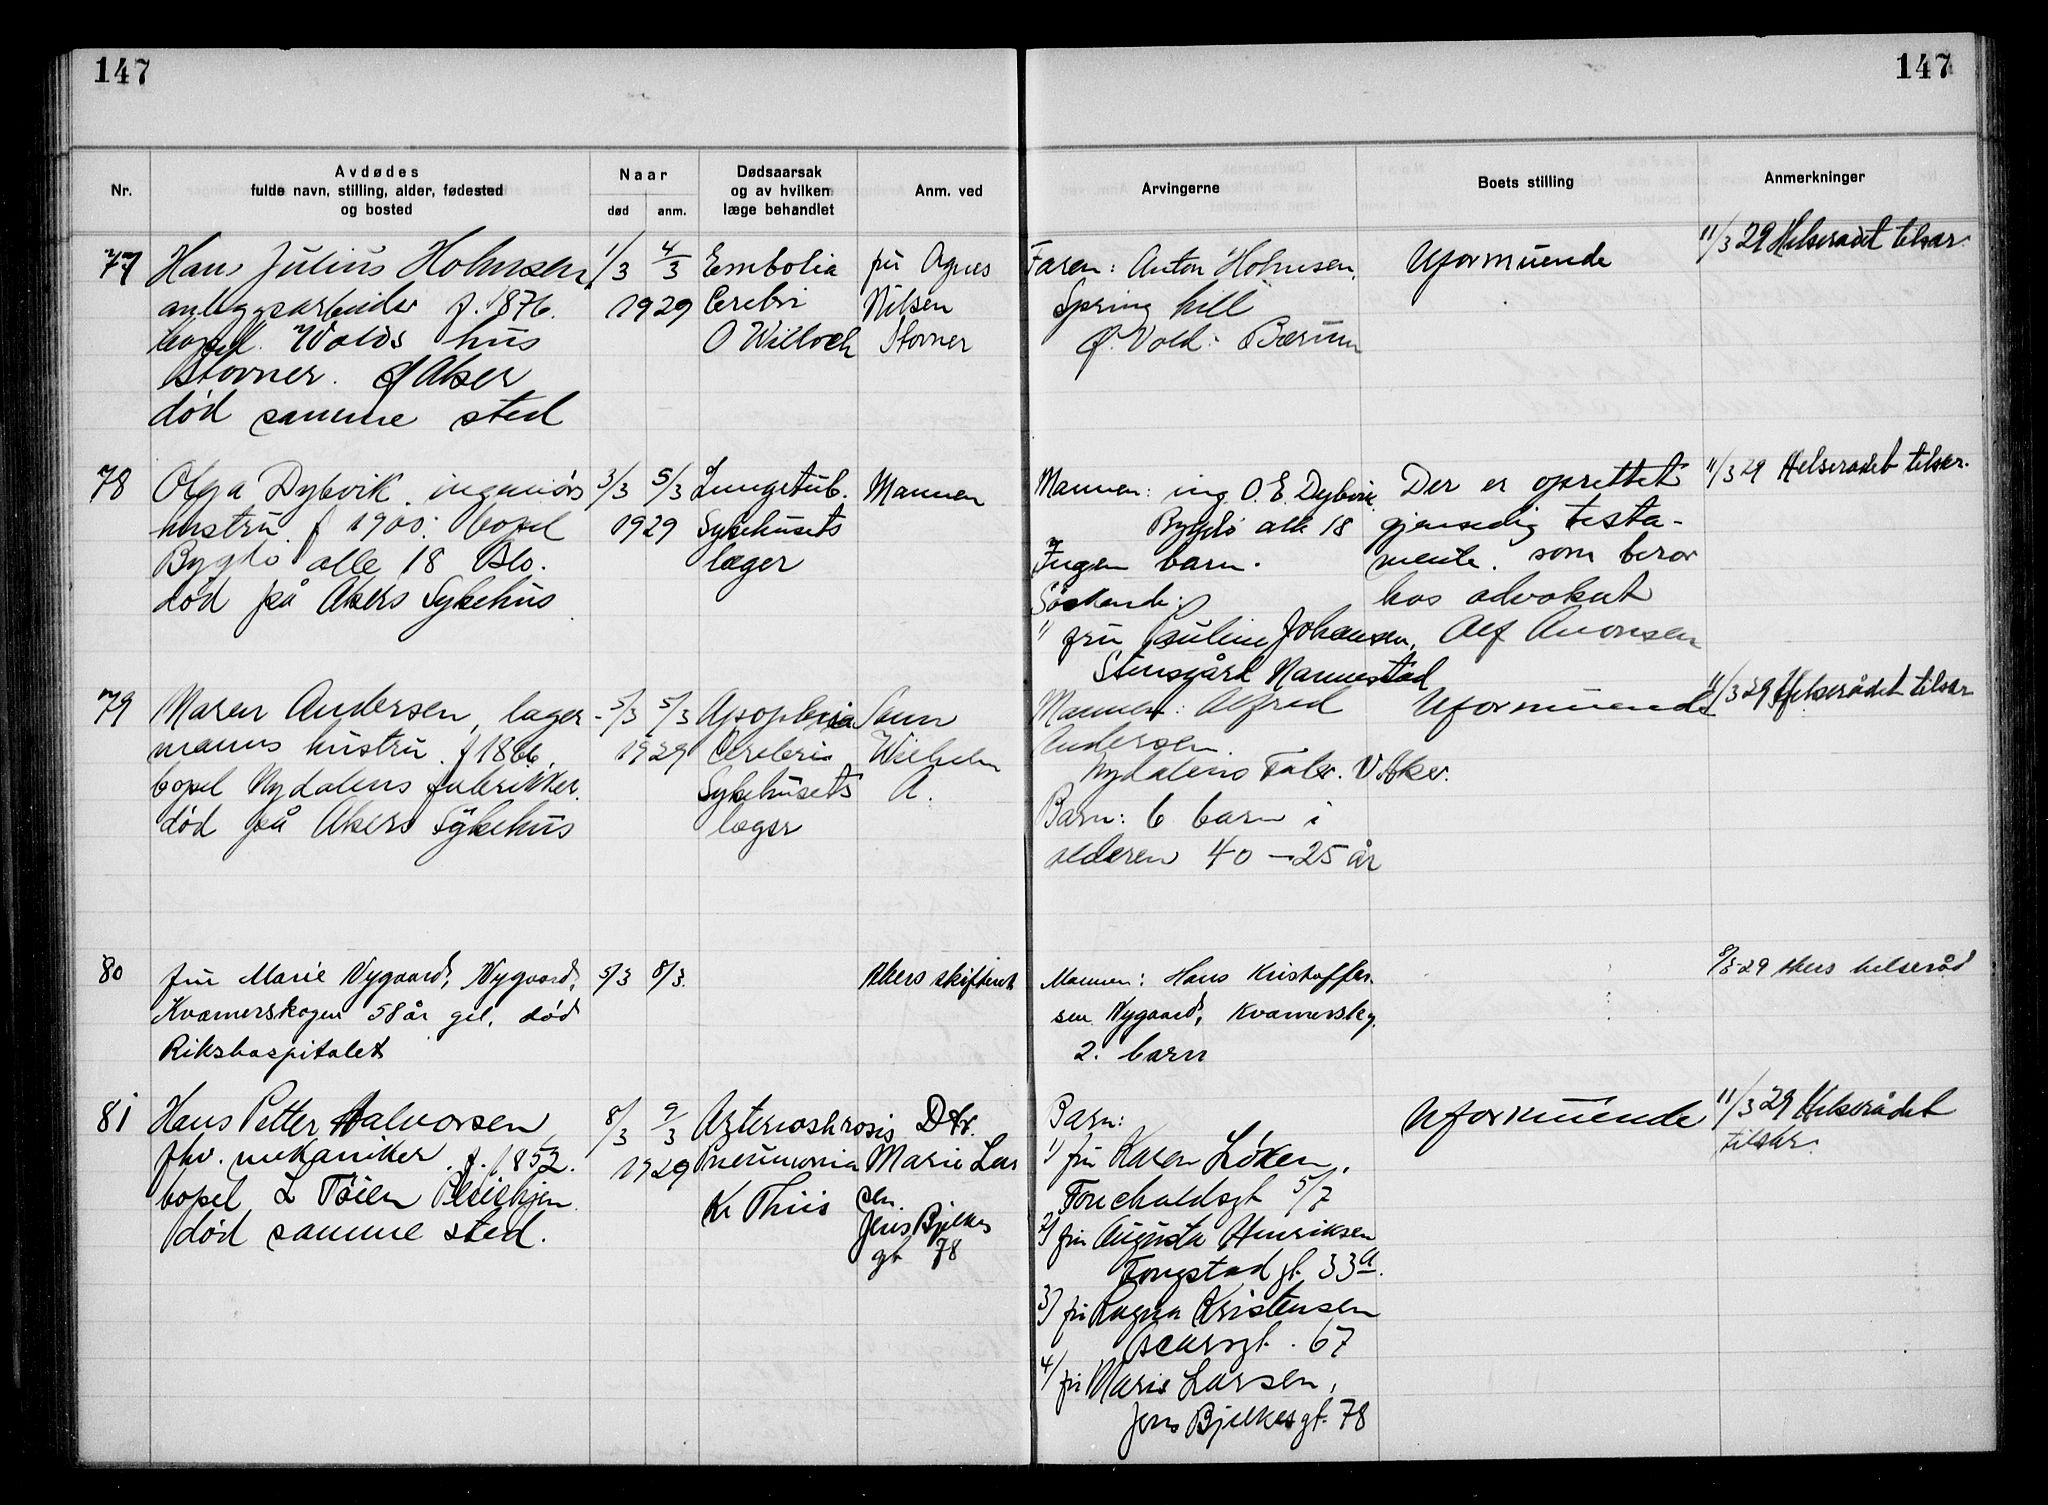 147
147
Nr.
Avdødes
fulde navn, stilling, alder, fødested
og bosted
Naar
død
anm.
Dødsaarsak
og av hvilken
læge behandlet
Anm. ved
Arvingerne
Boets stilling
Anmerkninger
77
Hans Julius Holmsen
anleggsarbeider f. 1876.
bopel. Volds hus
Stovner. Ø Aker
død samme sted
1/3 4/3
1929
Embolia
Cerebri
O Willoch
fru Agnes
Nilsen
Stovner
Faren: Anton Holmsen,
Spring hill
p. Vold. Bærum
Uformuende
11/3 29 Helserådet tilskr.
78
Olga Dybvik. ingeniørs
hustru. f 1900. bopel
Bygdø alle 18 Oslo.
død på Akers Sykehus
3/3 5/3
1929
Lungetub.
Sykehusets
læger
Mannen
Mannen: ing. O. E. Dybvik.
Bygdø alle 18
Ingen barn.
Søskende:
1/ fru Pauline Johansen,
Stensgård Nannestad
Der er oprettet
gjensidig testa-
mente. som beror
hos advokat
Alf Aronsen
11/3 29 Helserådet tilskr.
79
Maren Andersen, lager-
manns hustru. f 1866.
bopel Nydalens fabrikker.
død på Akers Sykehus
3/3 5/3
1929
Apoplexia
Cerebris
Sykehusets
læger
Sønn
Wilhelm
A.
Mannen: Alfred
Andersen.
Nydalens Fabr. V. Aker.
Barn: 6 barn i
alderen 40 – 25 år
Uformuende
11/3 29 Helserådet tilskr
80
fru Marie Nygaard, Nygaard,
Kværnerskogen 58 år gl. død
Rikshospitalet
5/3 8/3.
Akers skifterett
Mannen: Hans Kristoffer-
sen Nygaard, Kværnerskg.
2. barn
8/3-29 Akers helseråd
81
Hans Petter Halvorsen
fhv. mekaniker. f. 1852.
bopel L Tøien Pleiehjem
død samme sted.
8/3 9/3
1929
Arterioskrosis
Pneumonia
Kr Thiis
Dtr.
Marie Lar
sen.
Jens Bjelkes
gt 78
Barn:
1/ fru Karen Løken,
Touchaldsgt 5/7
2/ fru Augusta Henriksen
Tongstad gt. 33a.
3/ fru Ragna Kristensen
Oscarsgt. 67
4/ fru Marie Larsen,
Jens Bjelkesgt. 78
Uformuende
11/3 29 Helserådet
tilskr.